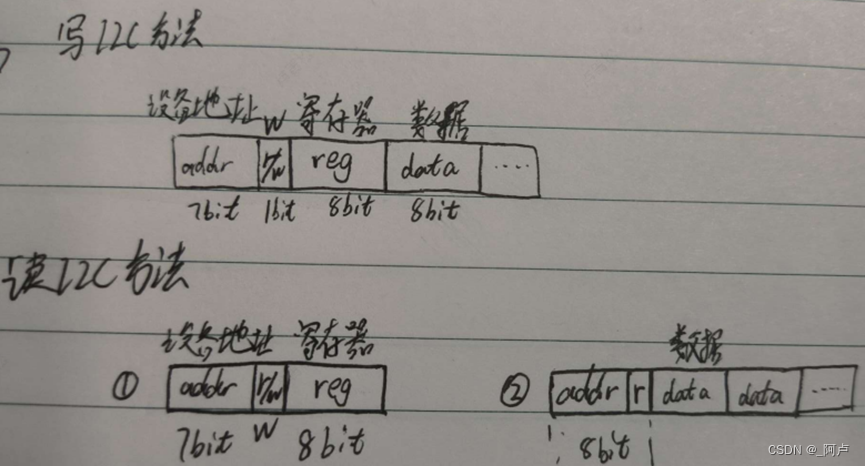 写I2C方法
设备地址 W 寄存器 数据
addr r/w reg data ....
7bit 1bit 8bit 8bit
读I2C方法
设备地址 寄存器
① addr r/w reg
7bit W 8bit
数据
② addr r data data ....
8bit
CSDN @_阿卢